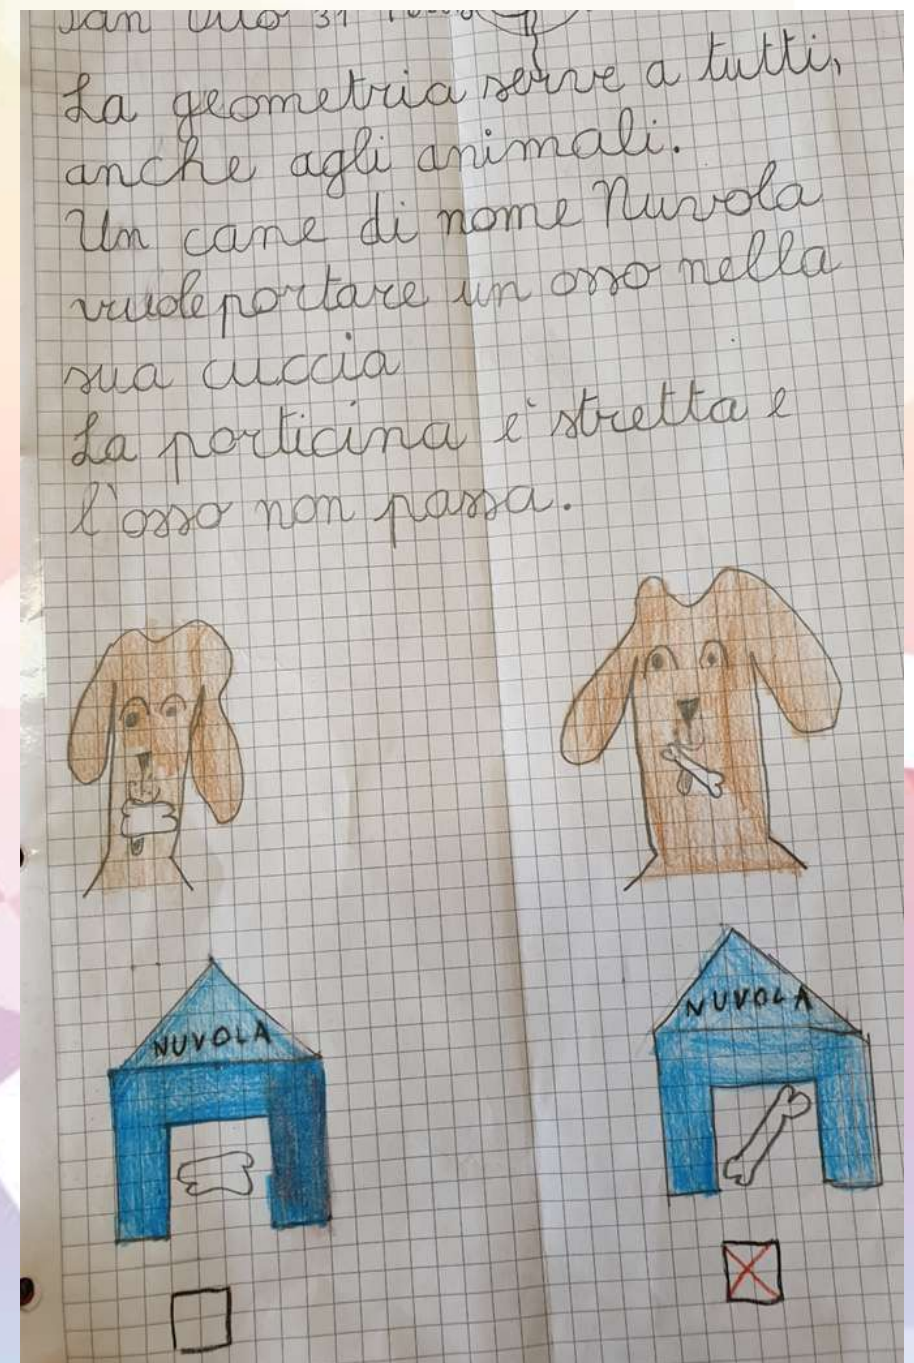 san
La geometria serve a tutti,
anche agli animali.
Un cane di nome Nuvola
vuole portare un osso nella
sua cuccia
La porticina è stretta e
l'osso non passa.
NUVOLA
NUVOLA